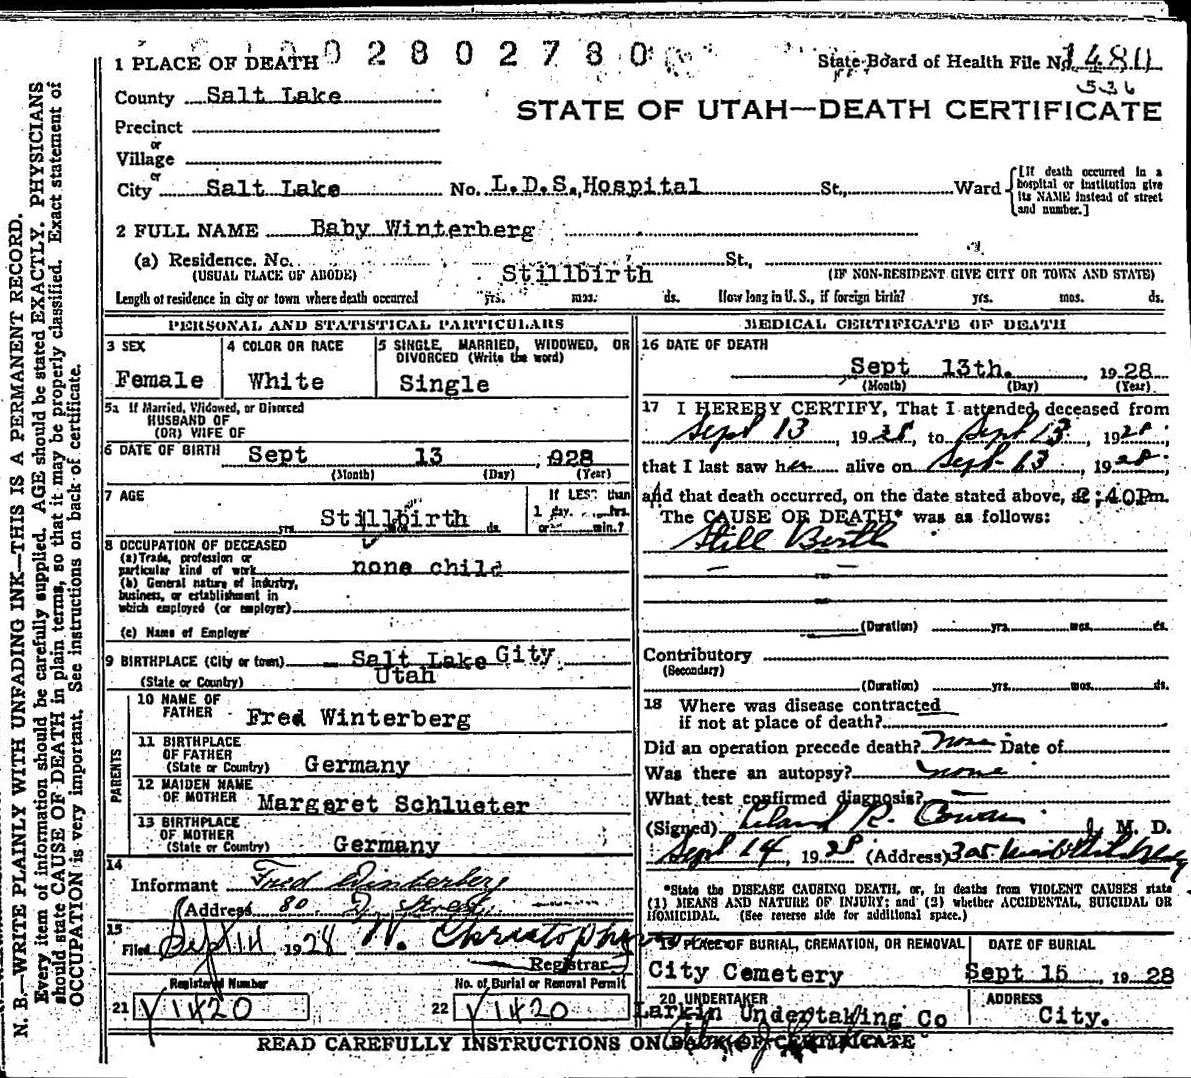 02802780
1 PLACE OF DEATH
State Board of Health File No. 1480
536
County Salt Lake
STATE OF UTAH—DEATH CERTIFICATE
Precinct
or
Village
or
City Salt Lake No. L.D.S. Hospital St., Ward
[If death occurred in a
hospital or institution give
its NAME instead of street
and number.]
2 FULL NAME Baby Winterberg
(a) Residence, No. St.,
(USUAL PLACE OF ABODE) Stillbirth (IF NON-RESIDENT GIVE CITY OR TOWN AND STATE)
Length of residence in city or town where death occurred yrs. mos. ds. How long in U.S., if foreign birth? yrs. mos. ds.
PERSONAL AND STATISTICAL PARTICULARS
3 SEX
Female
4 COLOR OR RACE
White
5 SINGLE, MARRIED, WIDOWED, OR
DIVORCED (Write the word)
Single
5a If Married, Widowed, or Divorced
HUSBAND OF
(OR) WIFE OF
6 DATE OF BIRTH Sept 13, 928
(Month) (Day) (Year)
7 AGE
Stillbirth
yrs. mos. ds.
If LESS than
1 day, hrs.
or min.?
8 OCCUPATION OF DECEASED
(a) Trade, profession or
particular kind of work none child
(b) General nature of industry,
business, or establishment in
which employed (or employer)
(c) Name of Employer
9 BIRTHPLACE (City or town) Salt Lake City
(State or Country) Utah
PARENTS
10 NAME OF
FATHER Fred Winterberg
11 BIRTHPLACE
OF FATHER
(State or Country) Germany
12 MAIDEN NAME
OF MOTHER Margaret Schlueter
13 BIRTHPLACE
OF MOTHER
(State or Country) Germany
14
Informant Fred Winterberg
(Address 80 Street
15
Filed Sept 14 1928
Registrar
Registered Number
21 1420
No. of Burial or Removal Permit
22 1420
MEDICAL CERTIFICATE OF DEATH
16 DATE OF DEATH
Sept 13th. 1928
(Month) (Day) (Year)
17 I HEREBY CERTIFY, That I attended deceased from
Sept 13, 1928, to Sept 13, 1928,
that I last saw her alive on Sept 13, 1928,
and that death occurred, on the date stated above, at 2:40 P.m.
The CAUSE OF DEATH* was as follows:
Still Birth
(Duration) yrs. mos. ds.
Contributory
(Secondary)
(Duration) yrs. mos. ds.
18 Where was disease contracted
if not at place of death?
Did an operation precede death? none Date of
Was there an autopsy? none
What test confirmed diagnosis?
(Signed) Leland R. Cowan, M. D.
Sept 14, 1928 (Address)
*State the DISEASE CAUSING DEATH, or, in deaths from VIOLENT CAUSES state
(1) MEANS AND NATURE OF INJURY; and (2) whether ACCIDENTAL, SUICIDAL OR
HOMICIDAL. (See reverse side for additional space.)
19 PLACE OF BURIAL, CREMATION, OR REMOVAL
City Cemetery
DATE OF BURIAL
Sept 15, 1928
20 UNDERTAKER
Larkin Undertaking Co
ADDRESS
City.
READ CAREFULLY INSTRUCTIONS ON BACK OF CERTIFICATE
N. B.—WRITE PLAINLY WITH UNFADING INK—THIS IS A PERMANENT RECORD.
Every item of information should be carefully supplied. AGE should be stated EXACTLY. PHYSICIANS
should state CAUSE OF DEATH in plain terms, so that it may be properly classified. Exact statement of
OCCUPATION is very important. See instructions on back of certificate.